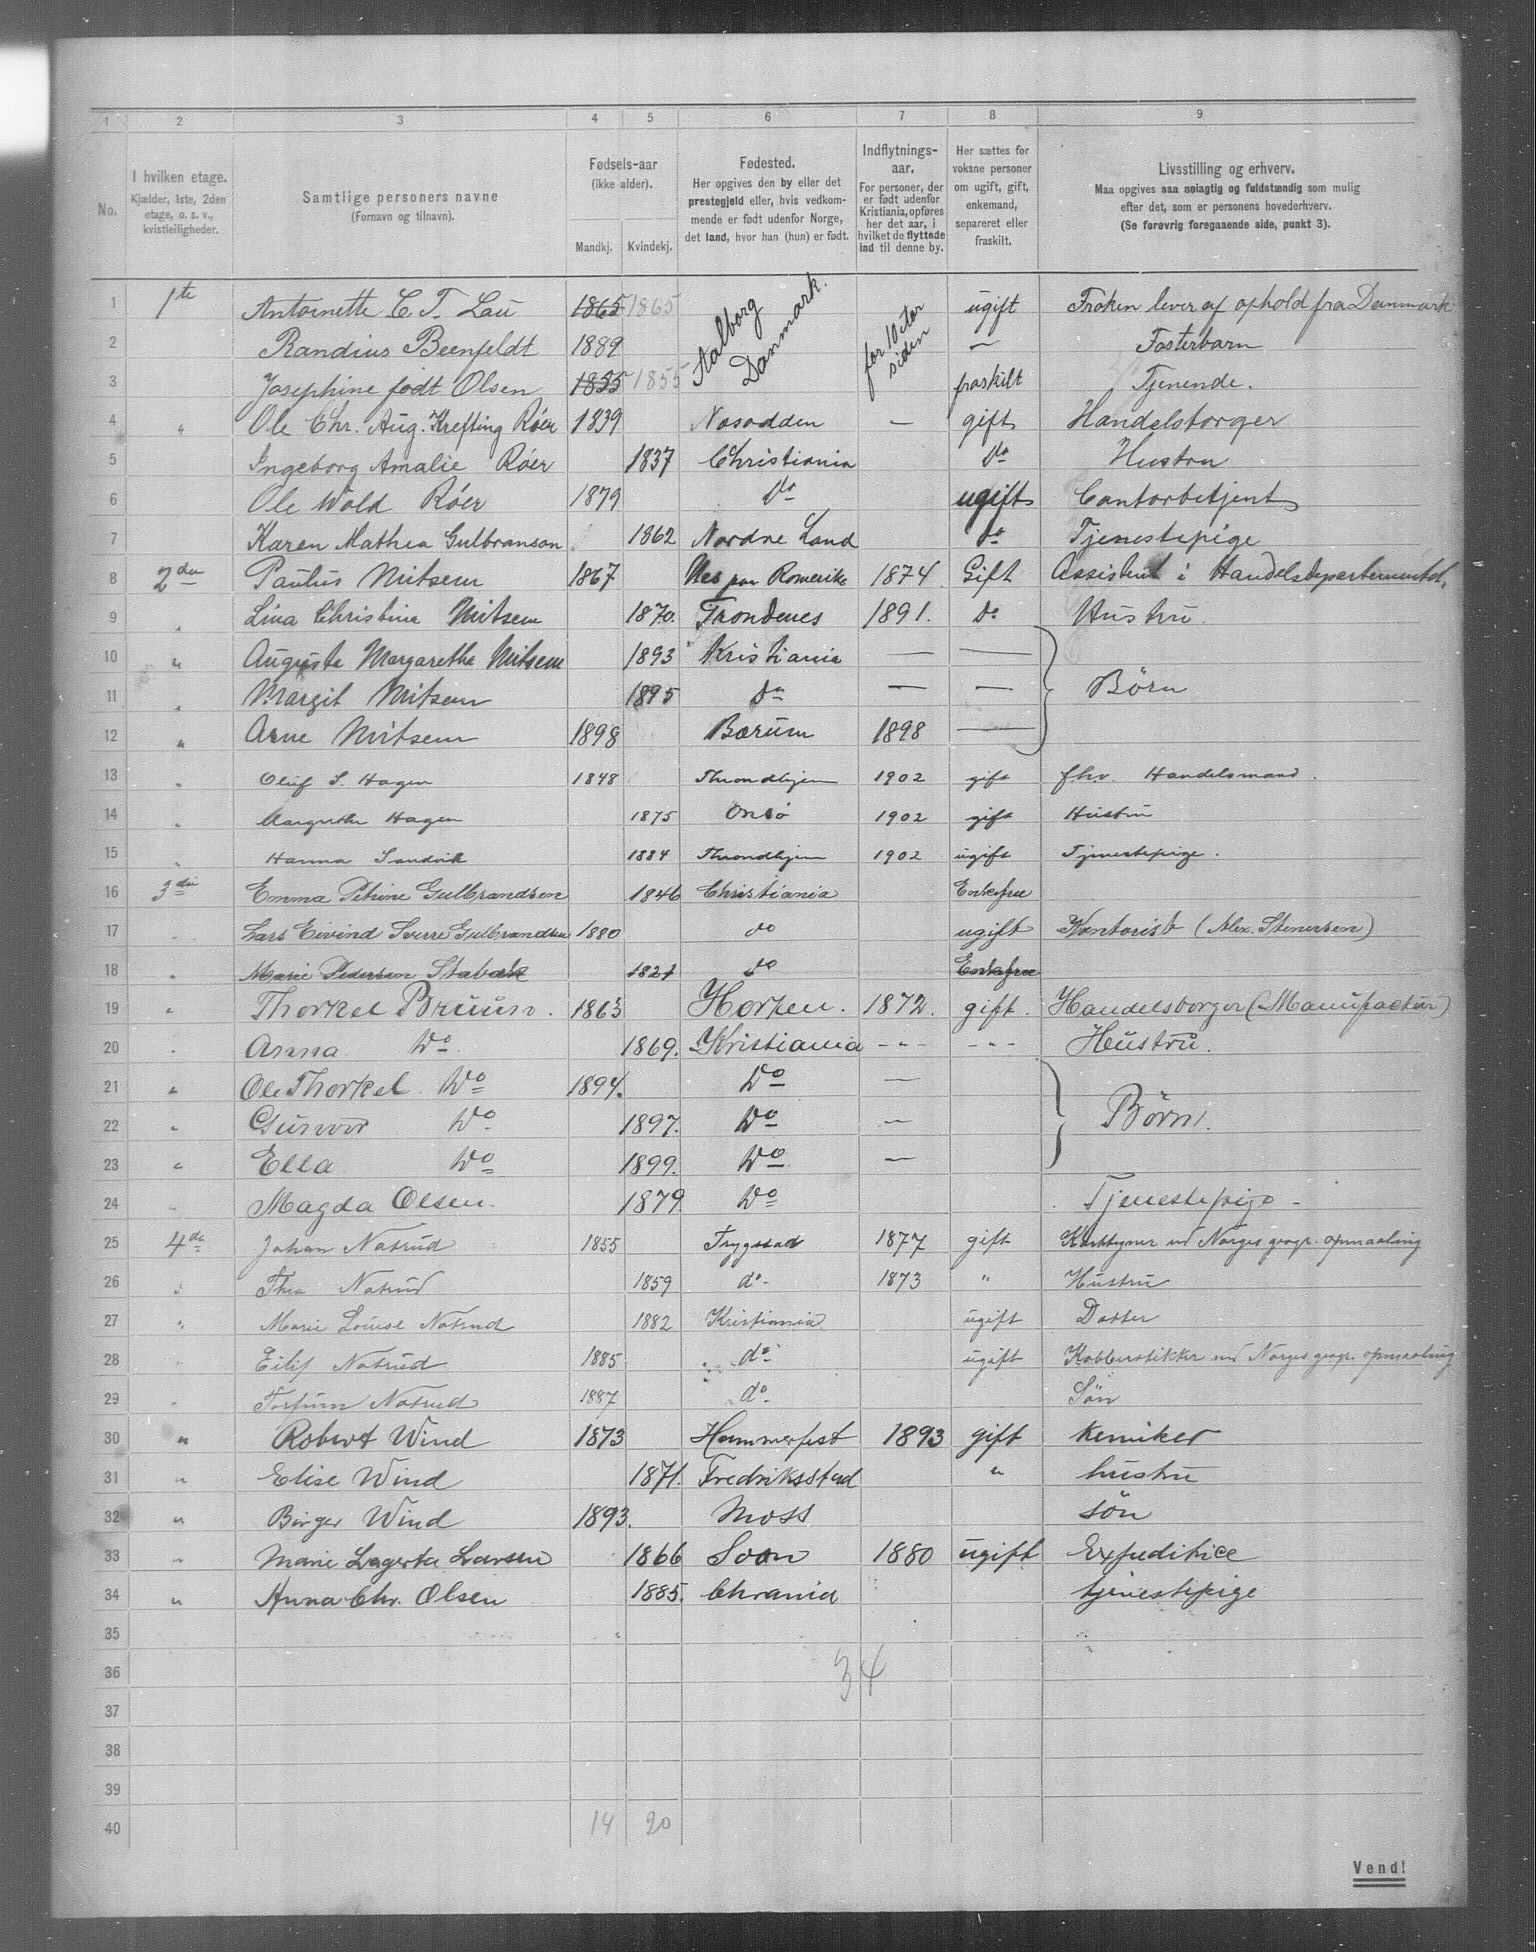 1 2 3 4 5 6 7 8 9
No.
I hvilken etage.
Kjælder, 1ste, 2den
etage, o. s. v.,
kvistleiligheder.
Samtlige personers navne
(Fornavn og tilnavn).
Fødsels-aar
(ikke alder).
Mandkj. Kvindekj.
Fødested.
Her opgives den by eller det
prestegjeld eller, hvis vedkom-
mende er født udenfor Norge,
det land, hvor han (hun) er født.
Indflytnings-
aar.
For personer, der
er født udenfor
Kristiania, opføres
her det aar, i
hvilket de flyttede
ind til denne by.
Her sættes for
voksne personer
om ugift, gift,
enkemand,
separeret eller
fraskilt.
Livsstilling og erhverv.
Maa opgives saa nøiagtig og fuldstændig som mulig
efter det, som er personens hovederhverv.
(Se forøvrig foregaaende side, punkt 3).
1 1te Antoinette C. T. Lau 1865 1865 Aalborg Danmark. for 10 siden ugift Frøken lever af ophold fra Danmark
2 Randius Beenfeldt 1889 — Fosterbarn
3 Josephine født Olsen 1855 1855 fraskilt Tjenende.
4 " Ole Chr. Aug. Krefting Röer 1839 Nesodden — gift Handelsborger
5 Ingeborg Amalie Röer 1837 Christiania do Hustru
6 Ole Wold Röer 1879 do ugift Contorbetjent
7 Karen Mathea Gulbranson 1862 Nordre Land do Tjenestepige
8 2den Paulus Mitsem 1867 Nes paa Romerike 1874 Gift Assistent i Handelsdepartementet.
9 " Lina Christine Mitsem 1870. Trondenes 1891. do Hustru.
10 " Augusta Margarethe Mitsem 1893 Kristiania — — Børn
11 " Margit Mitsem 1895 do — —
12 " Arne Mitsem 1898 Bærum 1898 —
13 " Oluf S. Hagen 1848 Throndhjem 1902 gift fhv. Handelsmand.
14 " Margrethe Hagen 1875 Onsö 1902 gift Hustru
15 " Hanna Sandvik 1884 Throndhjem 1902 ugift Tjenestepige.
16 3die Emma Petrine Gulbrandsen 1846 Christiania Enkefru
17 " Lars Eivind Sverre Gulbrandsen 1880 do ugift Kontorist (Alex. Stenersen)
18 " Marie Pedersen Stabæk 1821 do Enkefrue
19 " Thorkel Bruun. 1863 Horten. 1872. gift. Handelsborger (Manufactur)
20 " Anna Do 1869. Kristiania -"- -"- Hustru.
21 " Ole Thorkel Do 1894. Do — Børn.
22 " Gunvor Do 1897. Do —
23 " Ella Do 1899. Do —
24 " Magda Olsen. 1879. Do Tjenestepige -
25 4de Johan Natrud 1855 Trygstad 1877 gift ved Norges geogr. opmaaling
26 " Thea Natrud 1859 do - 1873 " Hustru
27 " Marie Louise Natrud 1882 Kristiania ugift Datter
28 " Eilif Natrud 1885 do ugift Kobberstikker ved Norges geogr. opmaaling
29 " Natrud 1887 do Sön
30 " Robert Wind 1873 Hammerfest 1893 gift Kemiker
31 " Elise Wind 1871. Fredriksstad " hustru
32 " Birger Wind 1893. Moss sön
33 " Marie Lagerta Larsen 1866 Soon 1880 ugift Expeditrice
34 " Anna Chr. Olsen 1885. Chrania tjenestepige
35
36 34
37
38
39
40 14 20
Vend!